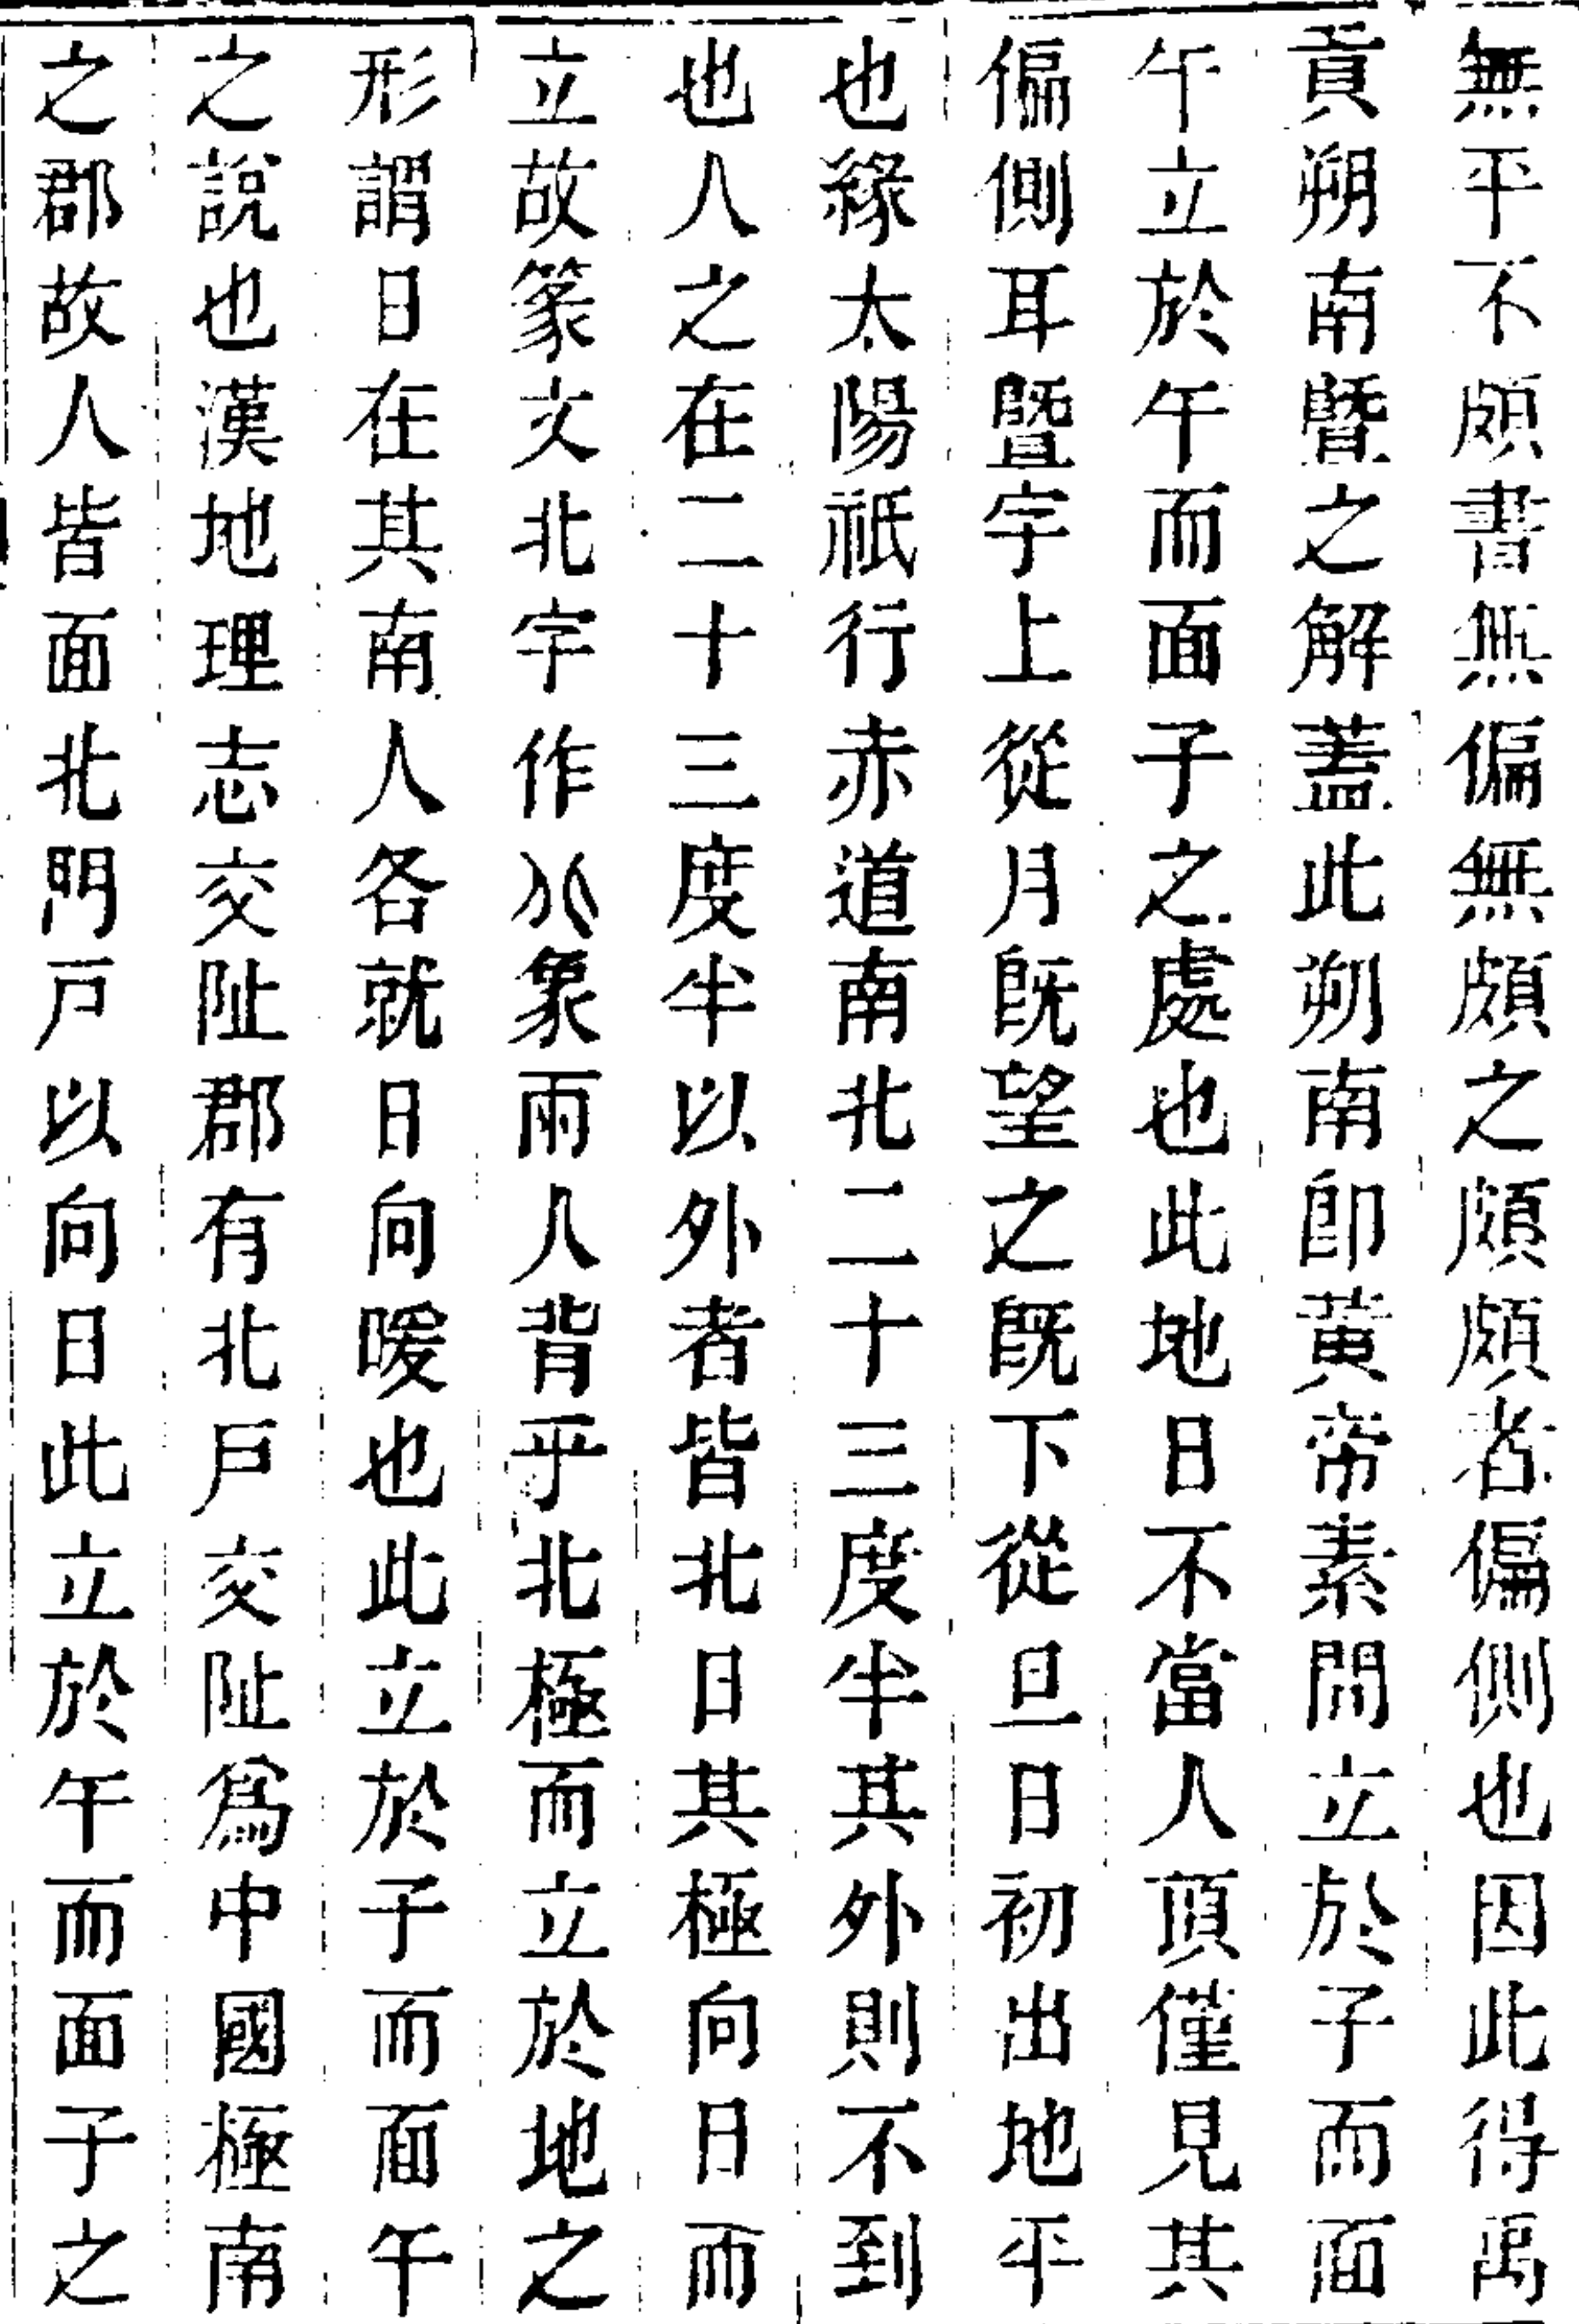 無平不頗書無偏無頗之頗頗者偏側也因此得禹
貢朔南暨之解蓋此朔南卽黃帝素問立於子而面
午立於午而面子之處也此地日不當人頂僅見其
偏側耳曁字上從月旣望之旣下從旦日初出地平
也緣太陽祇行赤道南北二十三度半其外則不到
也人之在二十三度半以外者皆北日其極向日而
立故篆文北字作𠔁象兩人背乎北極而立於地之
形謂日在其南人各就日向暖也此立於子而面午
之說也漢地理志交阯郡有北戸交阯爲中國極南
之郡故人皆面北門戸以向日此立於午而面子之